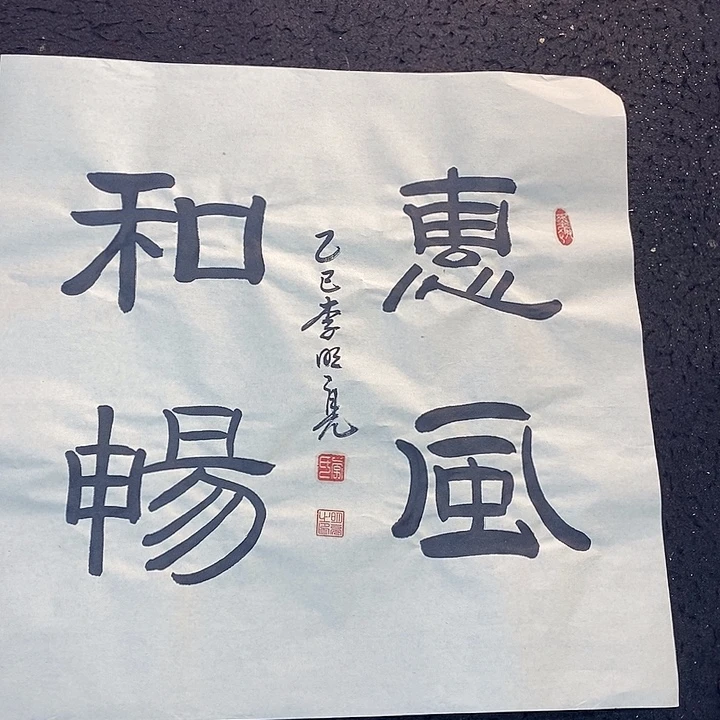 惠風
和暢
乙巳李明亮